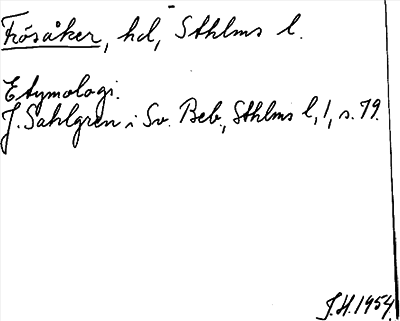 Frösåker, hd, Sthlms l.
Etymologi.
J. Sahlgren i Sv. Beb., Sthlms l, 1, s. 79.
J.H. 1954.